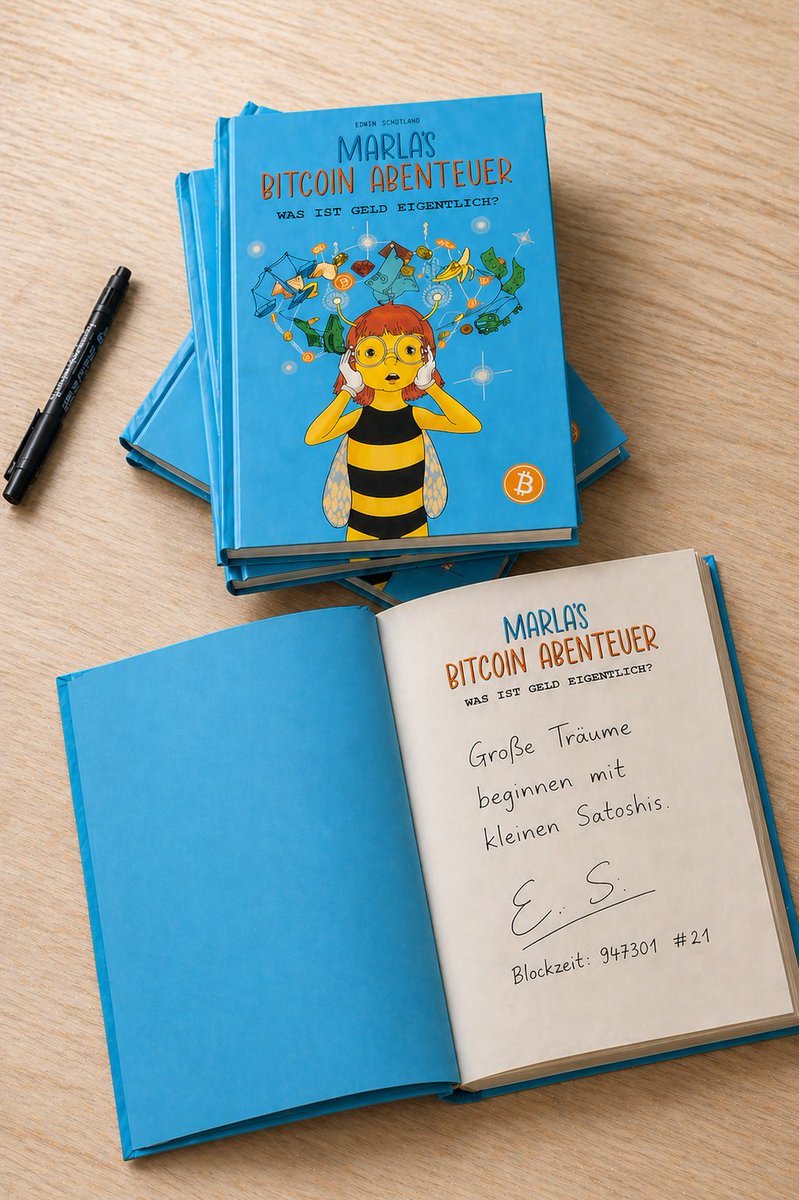 EDWIN SCHOTLAND
MARLA'S
BITCOIN ABENTEUER
WAS IST GELD EIGENTLICH?
MARLA'S
BITCOIN ABENTEUER
WAS IST GELD EIGENTLICH?
Große Träume
beginnen mit
kleinen Satoshis.
E. S.
Blockzeit: 947301 #21